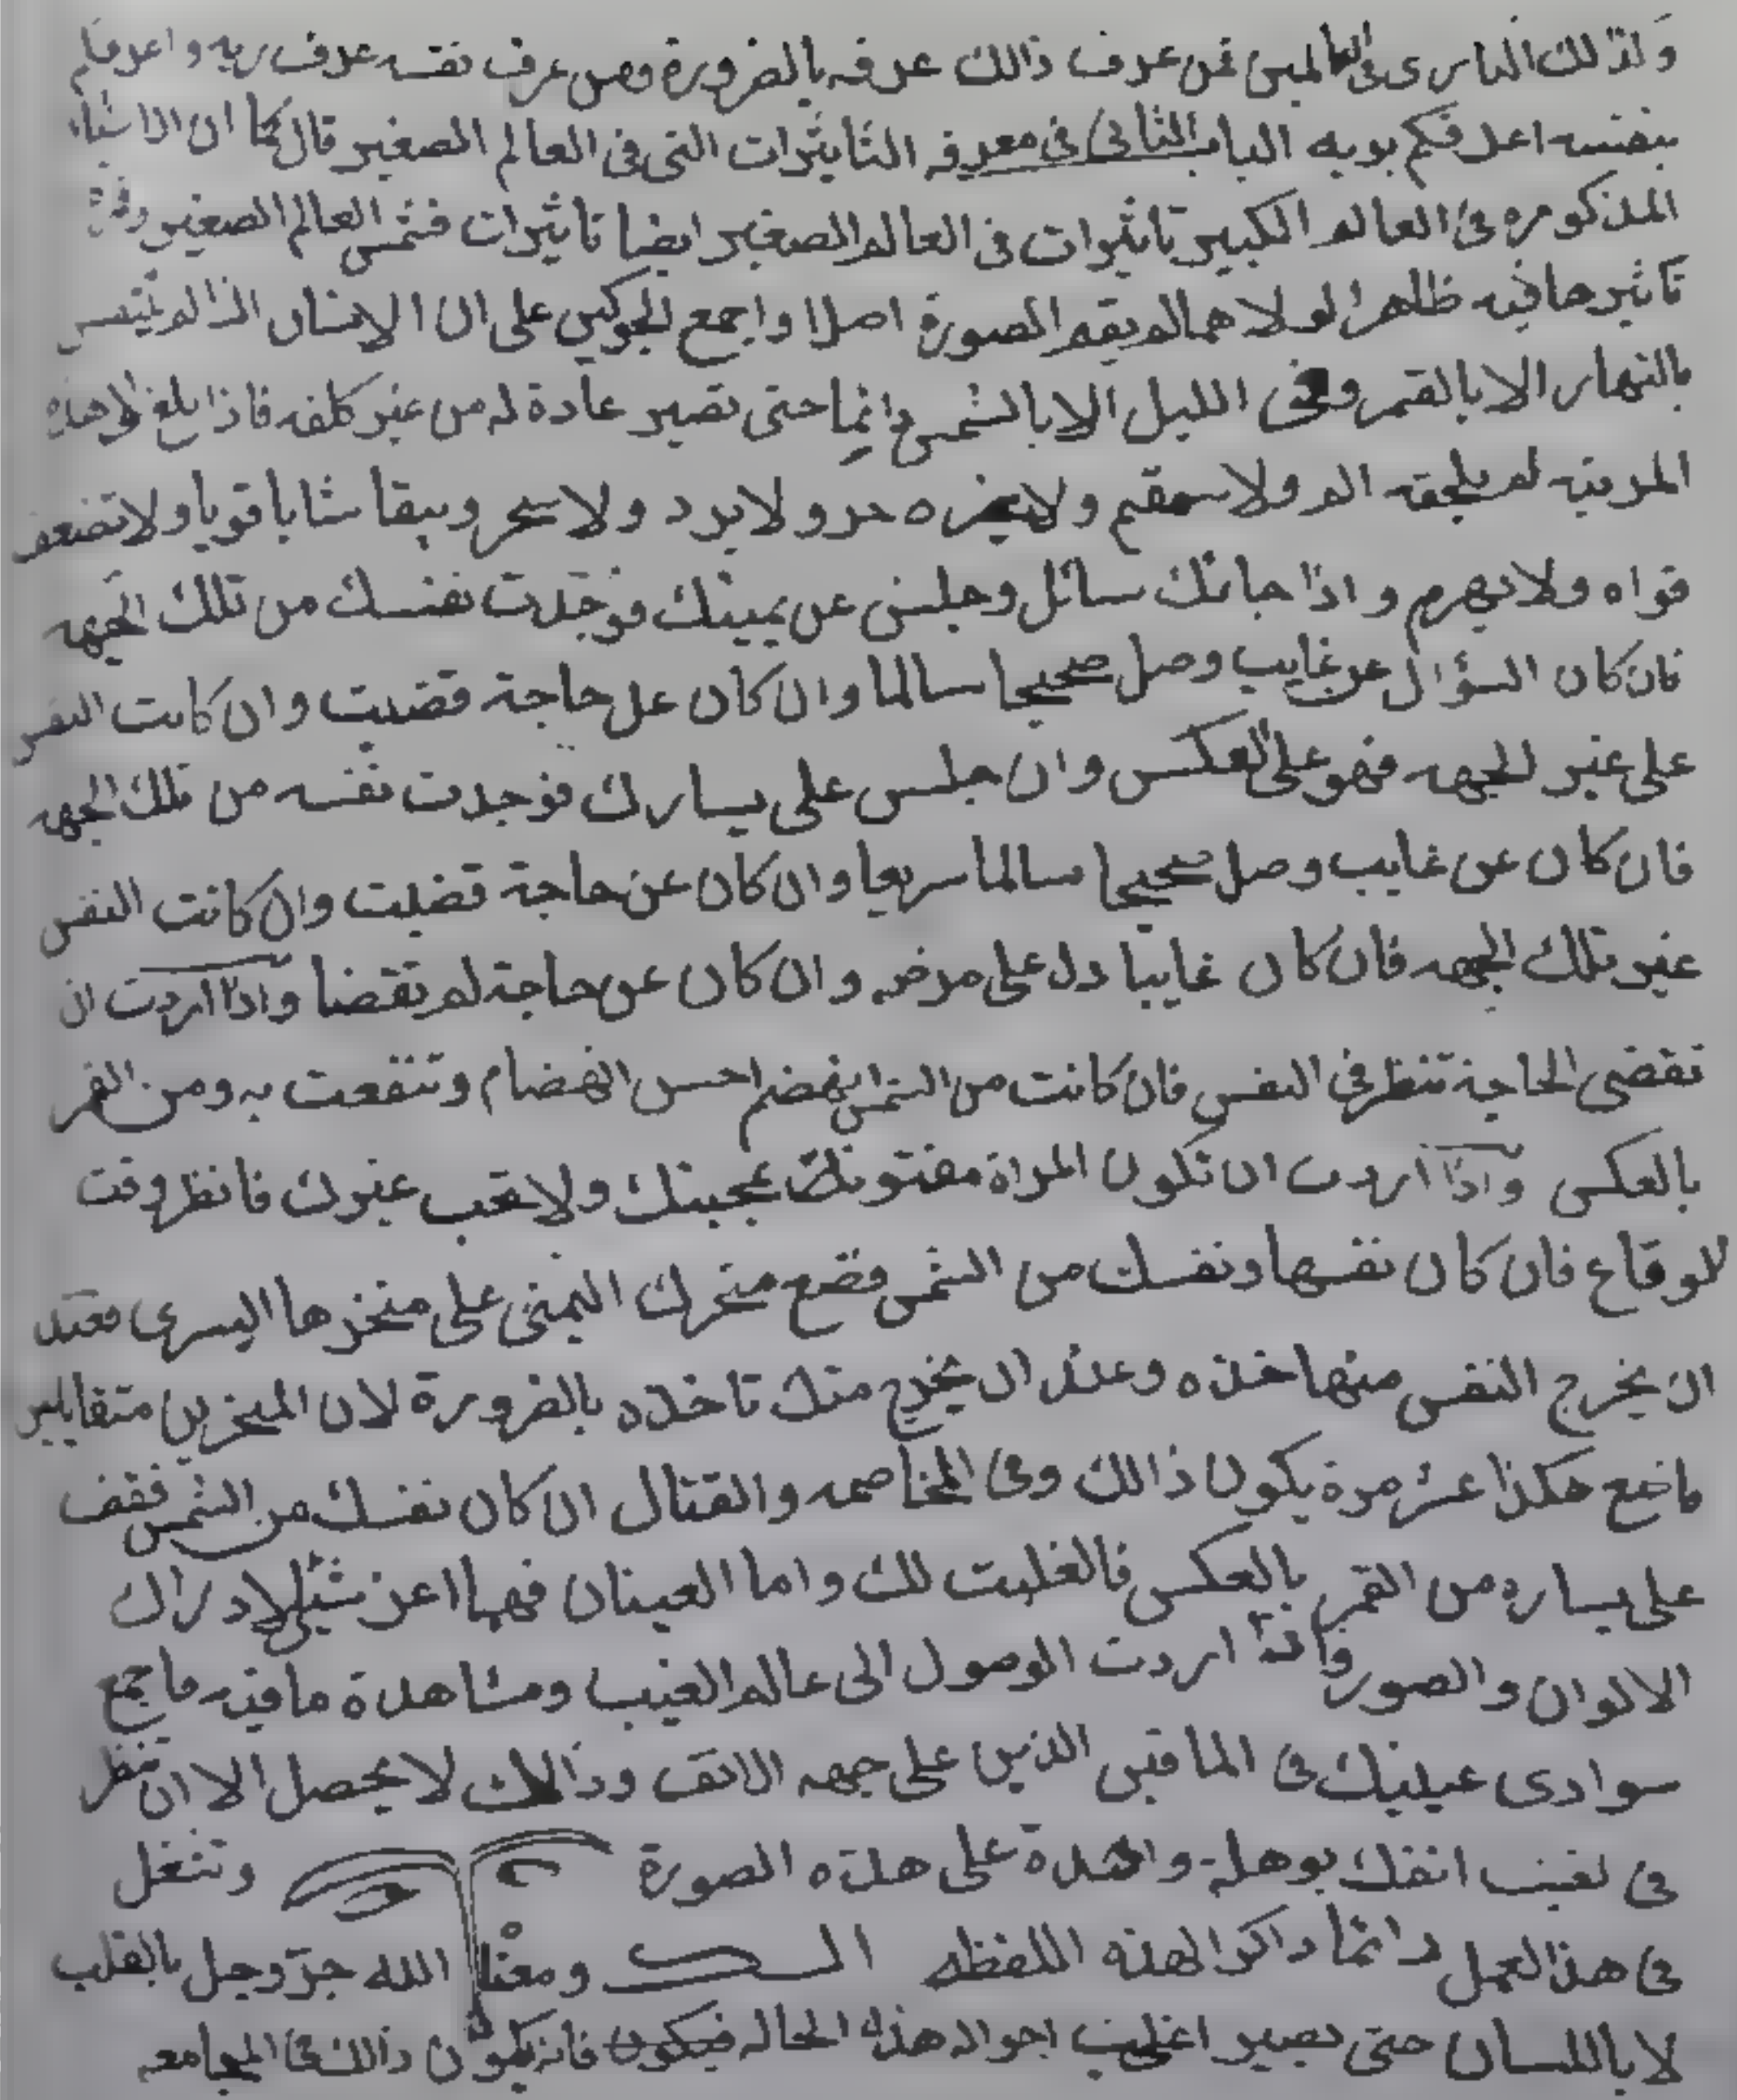 ولذلك الباري في العالمين فمن عرف ذالك عرفه بالضرورة ومن عرف نفسه عرف ربه واعرفكم
بنفسه اعرفكم بربه الباب الثاني في معرفه التاثيرات التي في العالم الصغير قال كما ان الاشياء
المذكوره في العالم الكبير تاثيرات في العالم الصغير ايضا تاثيرات فشمس العالم الصغير وقمره
تاثيرها فيه ظاهرا لولاهما لم يقم الصورة اصلا واجمع الجوكيين على ان الانسان اذا لم يتنفس
بالنهار الا بالقمر وفي الليل الا بالشمس دائما حتى تصير عادة له من غير كلفه فاذا بلغ هذه
المرتبه لم يلحقه الم ولا سقم ولا يضره حر ولا برد ولا سحر ويبقا شابا قويا ولا تضعف
قواه ولا يهرم واذا جائك سائل وجلس عن يمينك فوجدت نفسك من تلك الجهه
فان كان السؤال عن غايب وصل صحيحا سالما وان كان عن حاجة قضيت وان كانت النفس
على غير الجهه فهو على العكس وان جلس على يسارك فوجدت نفسه من تلك الجهه
فان كان عن غايب وصل صحيحا سالما سريعا وان كان عن حاجة قضيت وان كانت النفس
غير تلك الجهه فان كان غايبا دل على مرضه وان كان عن حاجة لم تقضا واذا اردت ان
تقضى الحاجة تنظر في النفس فان كانت من الشمس انهضم احسن انهضام وتنفعت به ومن القمر
بالعكس واذا اردت ان تكون المراة مفتونة بمحبتك ولا تحب غيرك فانظر وقت
الوقاع فان كان نفسها ونفسك من الشمس فضع منخرك اليمنى على منخرها اليسرى فعند
ان يخرج النفس منها خذه وعند ان يخرج منك تاخذه بالضرورة لان المنخرين متقابلين
فاصنع هكذا عشر مرة يكون ذالك وفي المخاصمه والقتال ان كان نفسك من الشمس فقف
على يساره من القمر بالعكس فالغلبت لك واما العينان فهما اعز شيئ لادراك
الالوان والصور واذا اردت الوصول الى عالم الغيب ومشاهدة ما فيه فاجمع
سوادى عينيك في الماقين الذين على جهه الانف وذالك لا يحصل الا ان تنظر
في انفك بوهلة واحدة على هذه الصورة وتشغل
في هذا العمل دائما ذاكرا لهذه اللفظه ومعنا الله عز وجل بالقلب
لا باللسان حتى يصير اغلب احواله هذه الحاله فيكون فانه يكون ذالك في المجامعه